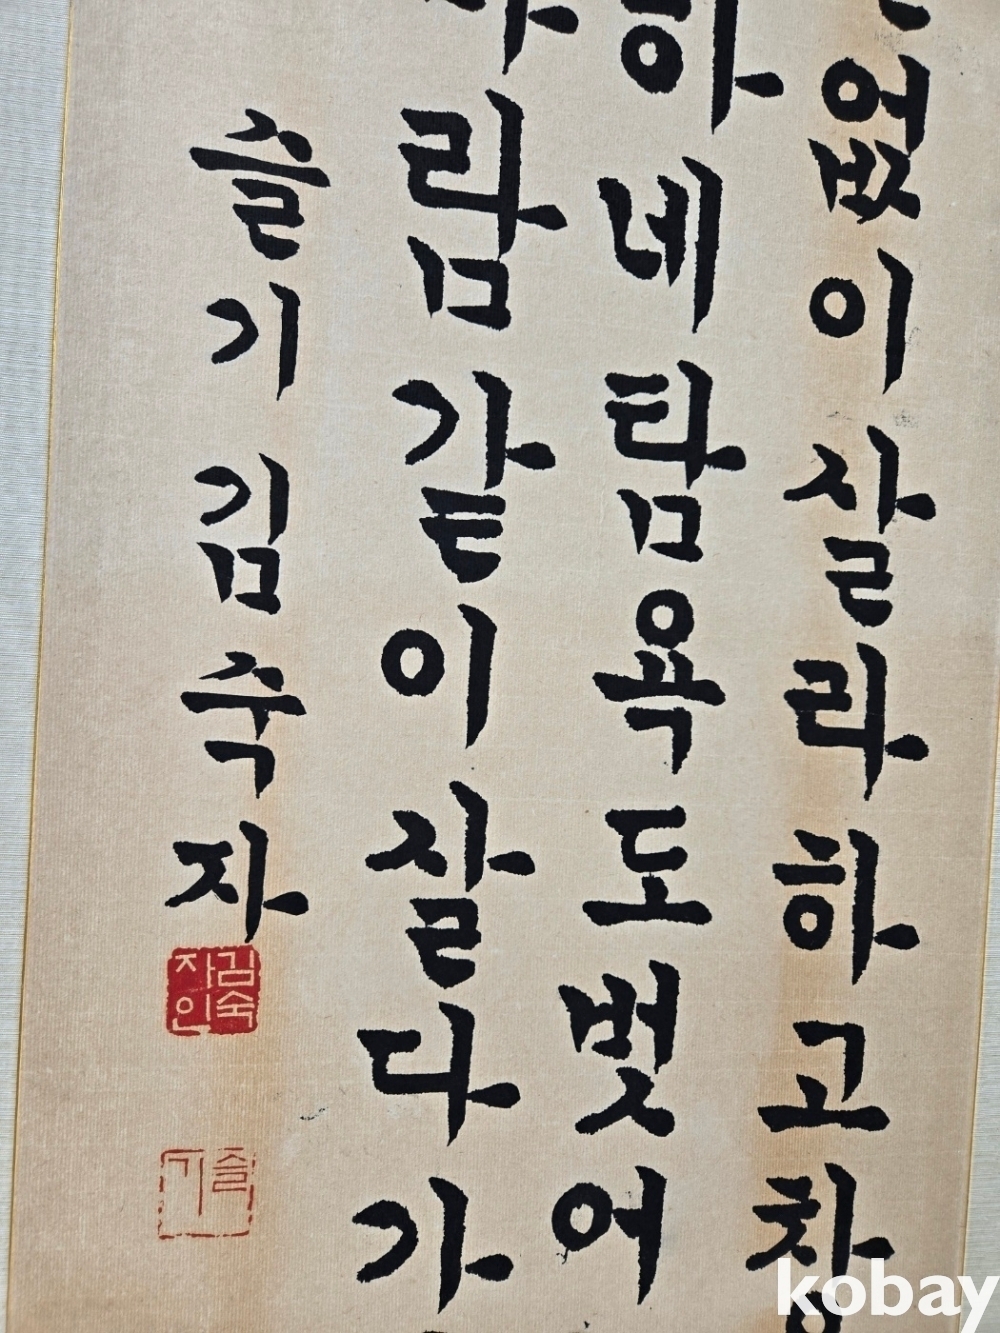 없이살라하고창
하네탐욕도벗어
람같이살다가
슬기 김숙자
김숙자인
슬기
kobay